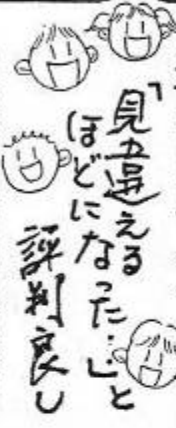 「見違える
ほどになった…」と
評判良し